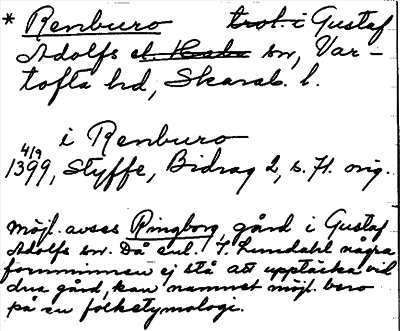 * Renburo trol. i Gustaf
Adolfs el. Habo sn, Var-
tofta hd, Skarab. l.
i Renburo
4/9
1399, Styffe, Bidrag 2, s. 71. orig.
möjl. avses Ringborg, gård i Gustaf
Adolfs sn. Då enl. Y. Lundahl några
fornminnen ej stå att upptäcka vid
dua gård, kan namnet möjl. bero
på en folketymologi.